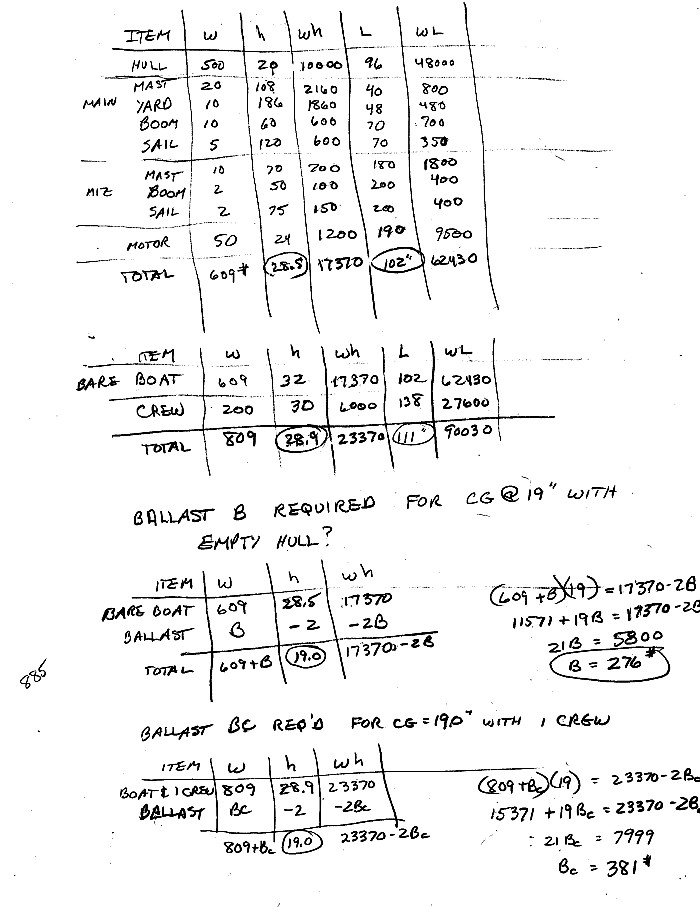 ITEM w h wh L wL
HULL 500 20 10000 96 48000
MAST 20 108 2160 40 800
MAIN YARD 10 186 1860 48 480
BOOM 10 60 600 70 700
SAIL 5 120 600 70 350
MAST 10 70 700 180 1800
MIZ BOOM 2 50 100 200 400
SAIL 2 75 150 200 400
MOTOR 50 24 1200 190 9500
TOTAL 609# 28.5 17370 102" 62430
ITEM w h wh L wL
BARE BOAT 609 32 17370 102 62430
CREW 200 30 6000 138 27600
TOTAL 809 28.9 23370 111" 90030
BALLAST B REQUIRED FOR CG @ 19" WITH
EMPTY HULL?
ITEM w h wh
BARE BOAT 609 28.5 17370
BALLAST B -2 -2B
TOTAL 609+B 19.0 17370-2B
(609+B)(19) = 17370-2B
11571 + 19B = 17370-2B
21B = 5800
B = 276#
885
BALLAST BC REQ'D FOR CG = 19.0" WITH 1 CREW
ITEM w h wh
BOAT & 1 CREW 809 28.9 23370
BALLAST BC -2 -2Bc
809+Bc 19.0 23370-2Bc
(809+Bc)(19) = 23370-2Bc
15371 + 19Bc = 23370-2Bc
21Bc = 7999
Bc = 381#